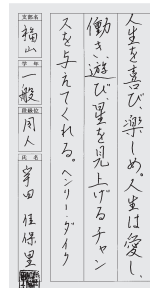 人生を喜び、楽しめ。人生は愛し、
働き、遊び、星を見上げるチャン
スを与えてくれる。ヘンリー・ダイク
支部名
福山
学年
一般
段級位
同人
氏名
宇田佳保里